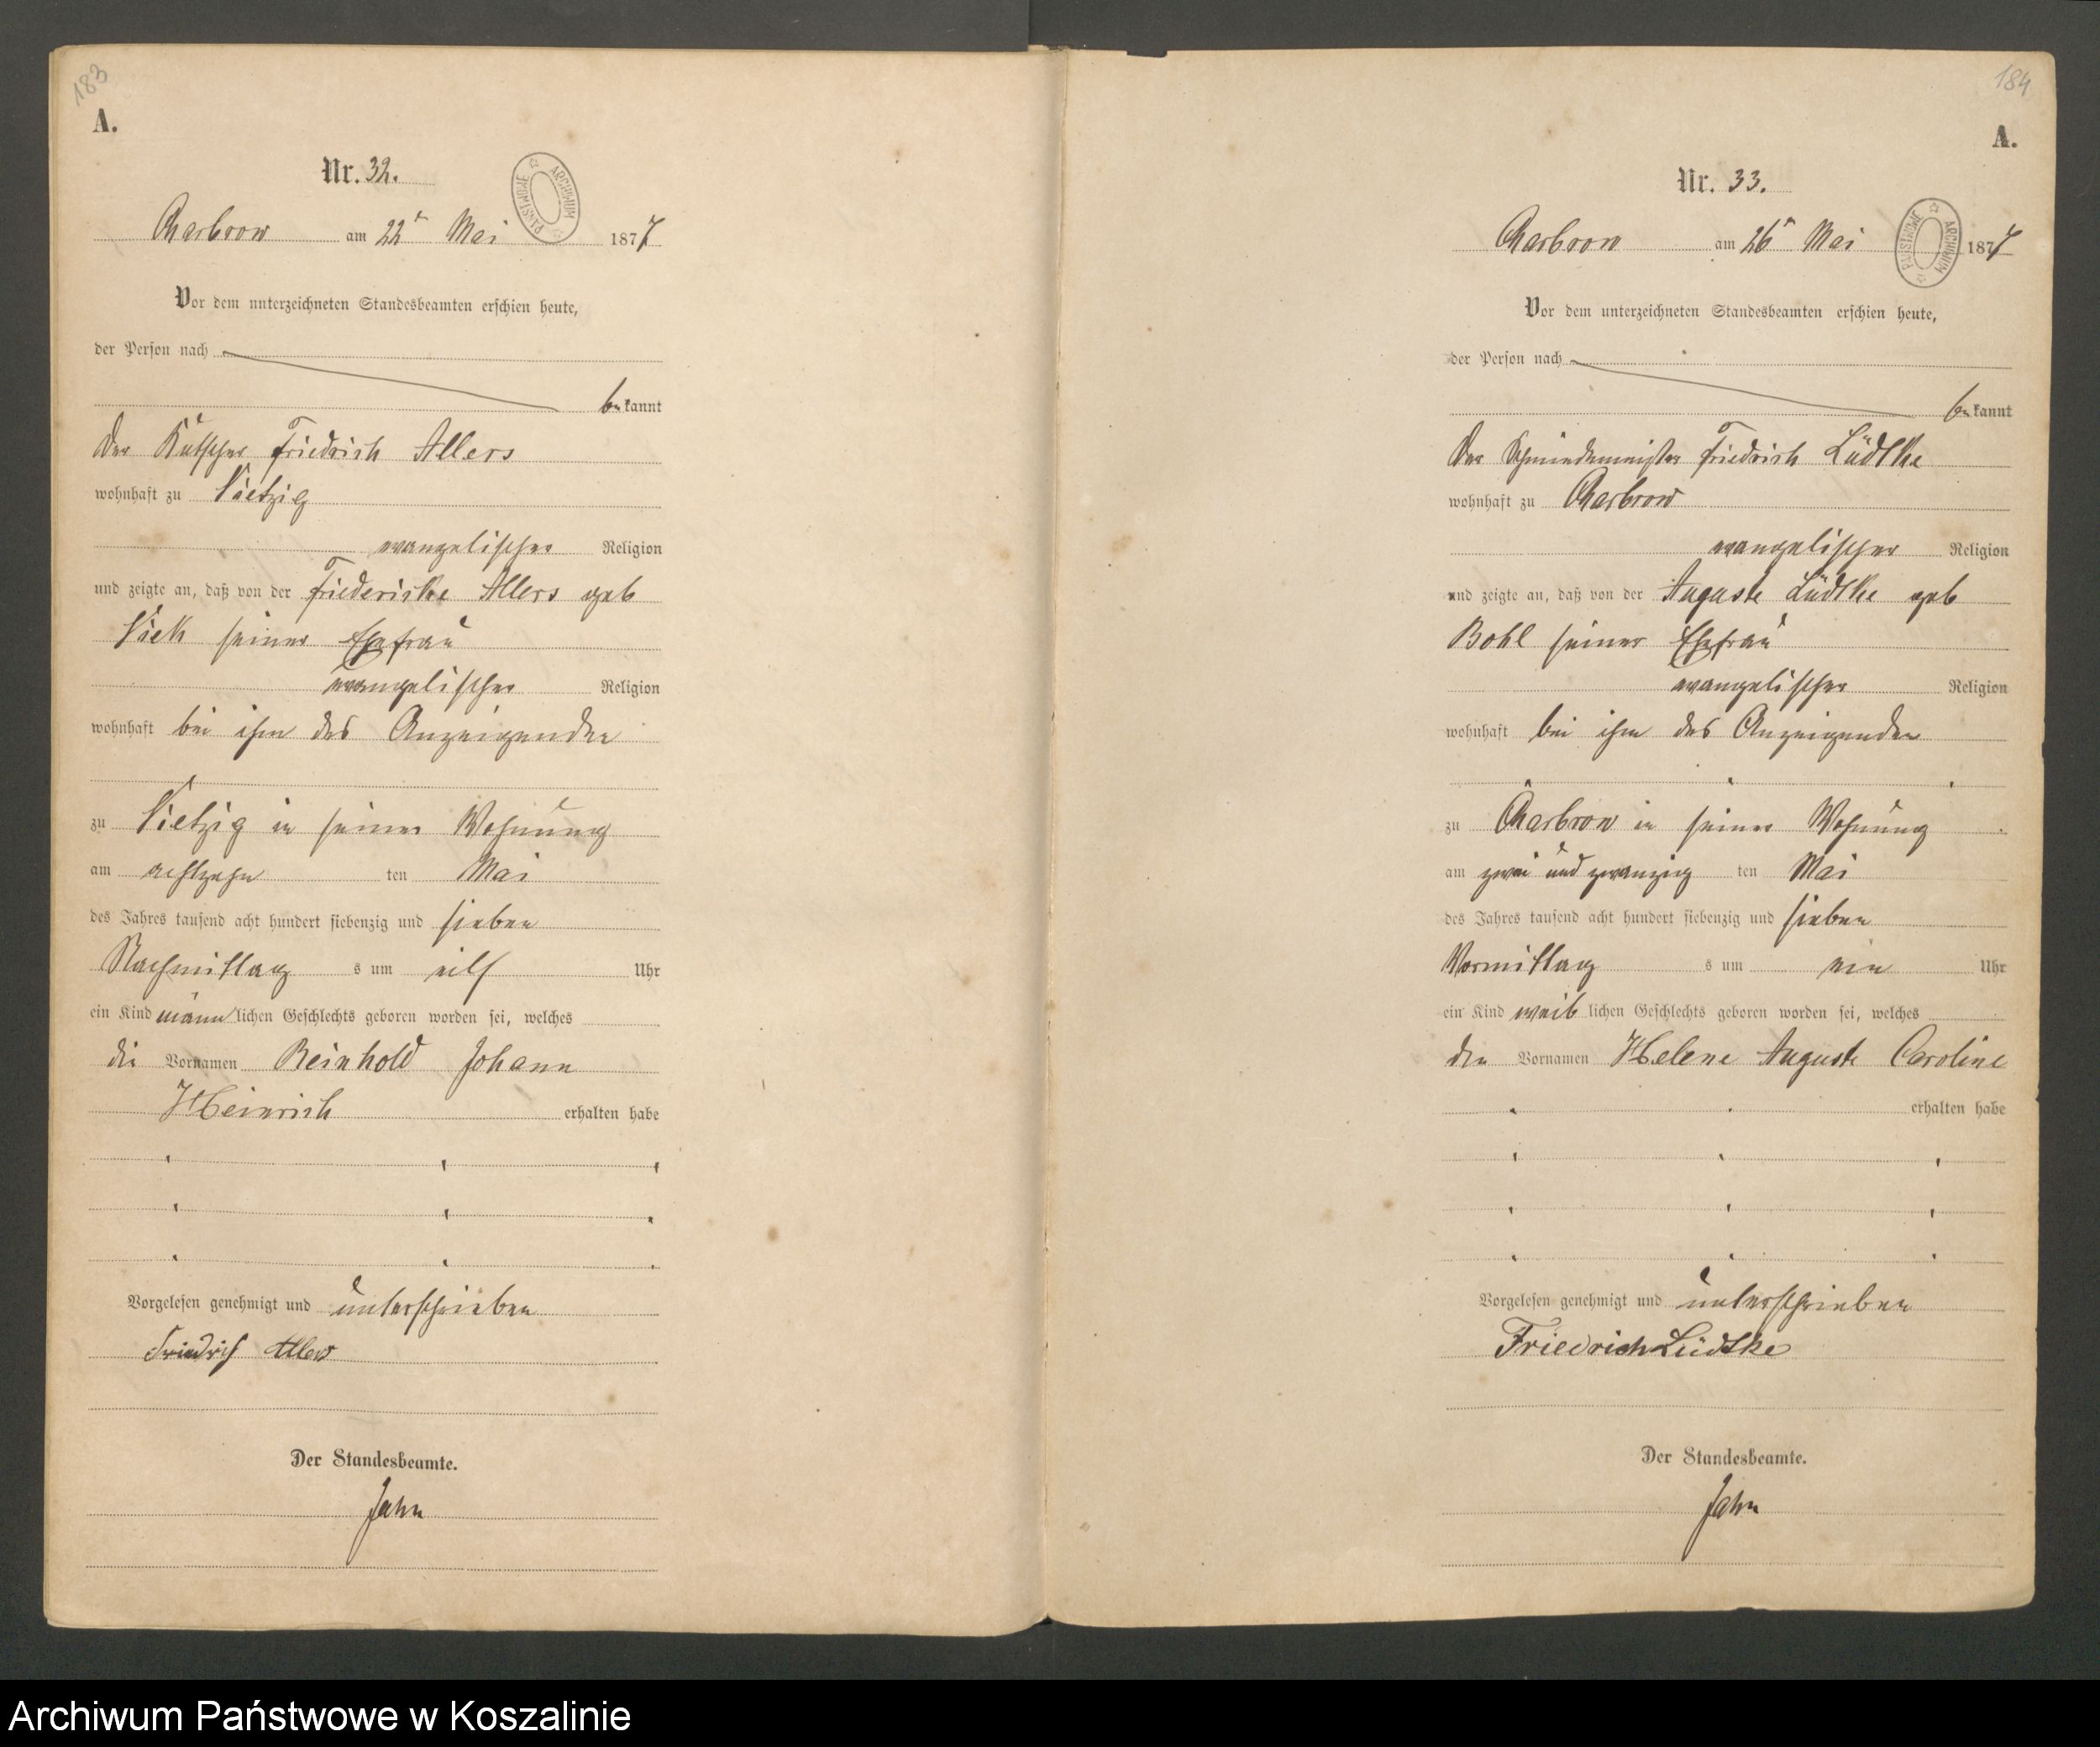 183
A.
Nr. 32.
PAŃSTWOWE ARCHIWUM
Charbrow am 22ᵗ Mai 1877
Vor dem unterzeichneten Standesbeamten erschien heute,
der Person nach
bekannt
Der Kutscher Friedrich Allers
wohnhaft zu Vietzig
evangelischer Religion
und zeigte an, daß von der Friederike Allers geb
Viek seiner Ehefrau
evangelischer Religion
wohnhaft bei ihm des Anzeigenden
zu Vietzig in seiner Wohnung
am achtzehn ten Mai
des Jahres tausend acht hundert siebenzig und sieben
Nachmittag s um eilf Uhr
ein Kind männlichen Geschlechts geboren worden sei, welches
die Vornamen Reinhold Johann
Heinrich erhalten habe
Vorgelesen genehmigt und unterschrieben
Friedrich Allers
Der Standesbeamte.
Jahn
184
A.
Nr. 33.
PAŃSTWOWE ARCHIWUM
Charbrow am 26ᵗ Mai 1877
Vor dem unterzeichneten Standesbeamten erschien heute,
der Person nach
bekannt
Der Schmiedemeister Friedrich Lüdtke
wohnhaft zu Charbrow
evangelischer Religion
und zeigte an, daß von der Auguste Lüdtke geb
Bohl seiner Ehefrau
evangelischer Religion
wohnhaft bei ihm des Anzeigenden
zu Charbrow in seiner Wohnung
am zwei und zwanzig ten Mai
des Jahres tausend acht hundert siebenzig und sieben
Vormittag s um ein Uhr
ein Kind weiblichen Geschlechts geboren worden sei, welches
den Vornamen Helene Auguste Caroline
erhalten habe
Vorgelesen genehmigt und unterschrieben
Friedrich Lüdtke
Der Standesbeamte.
Jahn
Archiwum Państwowe w Koszalinie